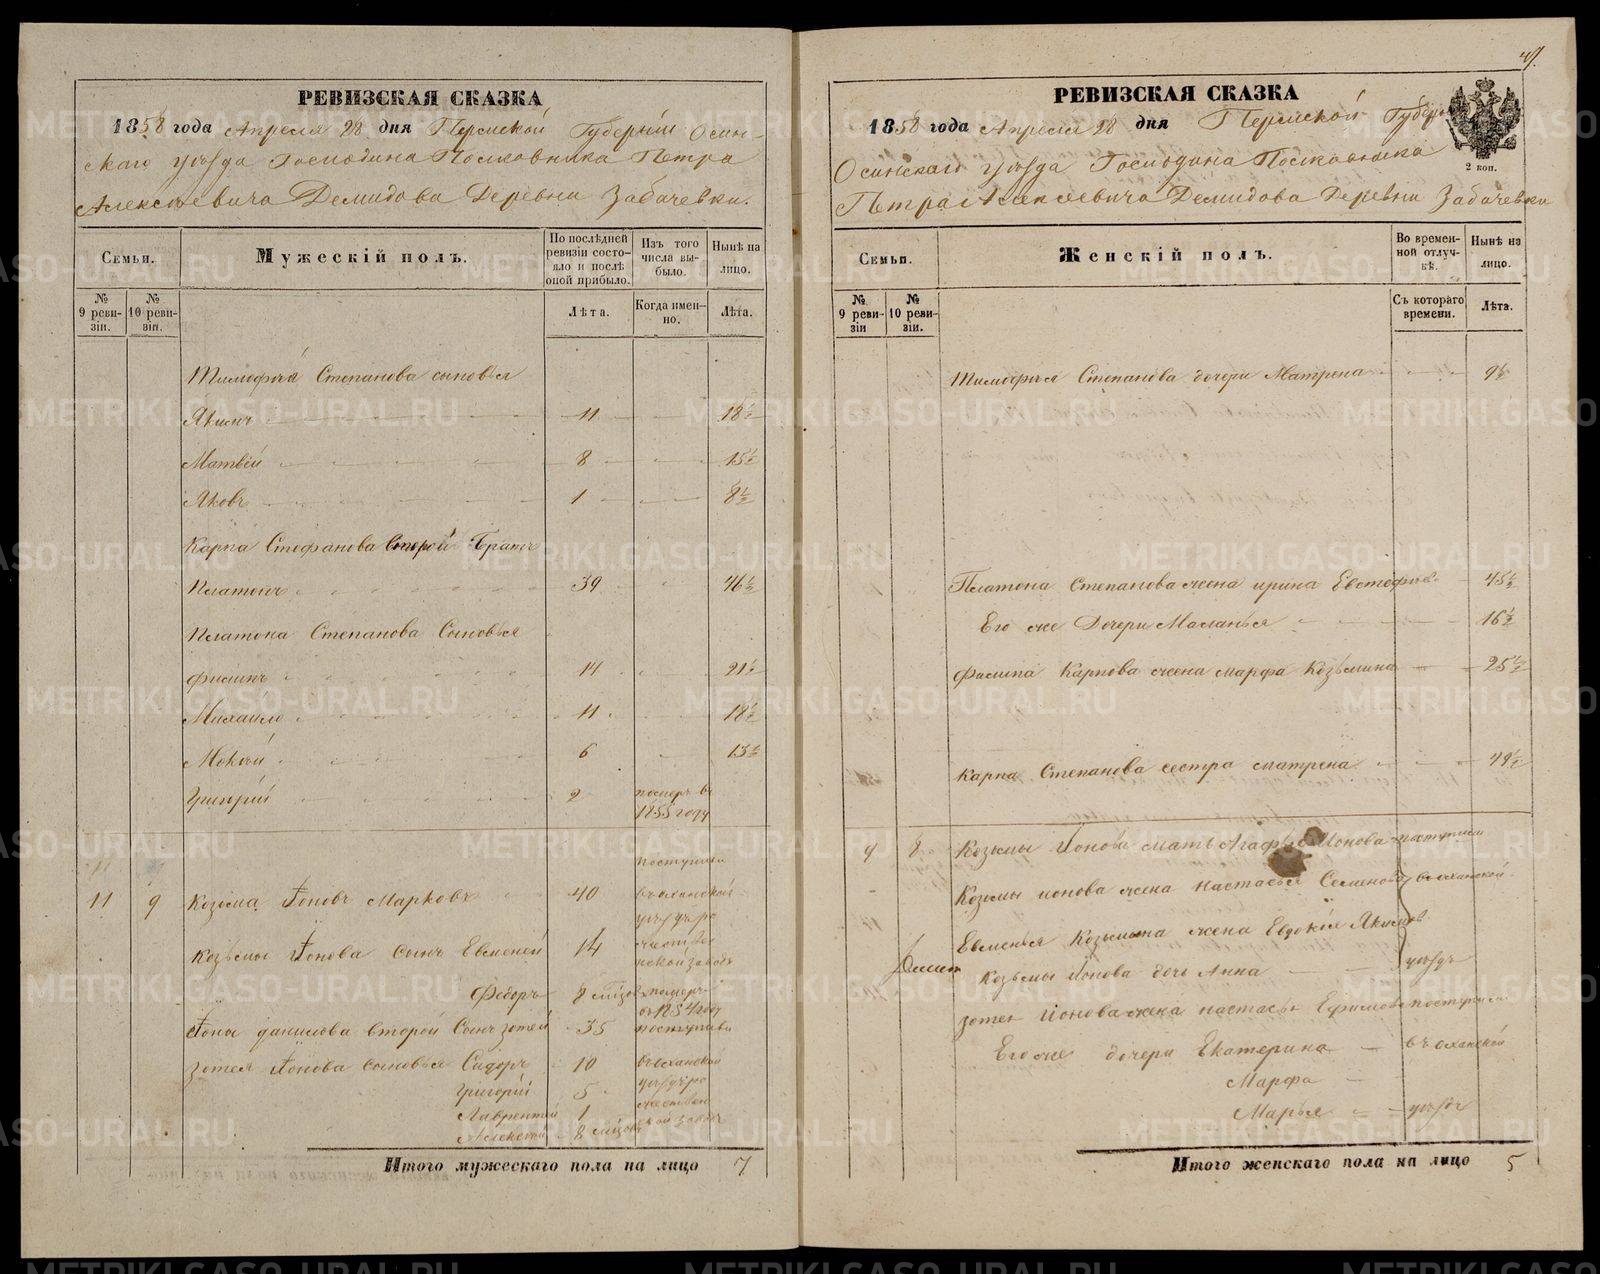 РЕВИЗСКАЯ СКАЗКА
1858 года Апреля 28 дня Пермской Губернии Осин-
скаго уѣзда Господина Полковника Петра
Алексѣевича Демидова Деревни Забачевки.
Семьи.
Мужескій полъ.
По послѣдней ревизіи состояло и послѣ оной прибыло.
Изъ того числа выбыло.
Нынѣ на лицо.
№ 9 ревизіи.
№ 10 ревизіи.
Лѣта.
Когда именно.
Лѣта.
Тимофѣя Степанова сыновья
Якимъ 11 18½
Матвѣй 8 15½
Яковъ 1 8½
Карпа Стефанова второй Братъ
Платонъ 39 46½
Платона Степанова Сыновья
Филипъ 14 21½
Михайло 11 18½
Мокѣй 6 13½
Григорій 2 померъ въ 1855 году
11 9 Козьма Іоновъ Марковъ 40 поступили въ оханской уѣздъ
Козьмы Іонова сынъ Евменей 14
Федоръ 8 мѣсяц померъ въ 1854 году
Іоны данилова второй Сынъ зотей 35 поступили
зотея Іонова сыновья Сидоръ 10 въ оханской
Григорій 5
Лаврентей 1
Алексѣй 8 мѣсяц
Итого мужескаго пола на лицо 7
РЕВИЗСКАЯ СКАЗКА
2 коп.
1858 года Апреля 28 дня Пермской Губерн
Осинскаго уѣзда Господина Полковника
Петра Алексѣевича Демидова Деревни Забачевки
Семьи.
Женскій полъ.
Во временной отлучкѣ.
Нынѣ на лицо.
№ 9 ревизіи
№ 10 ревизіи.
Съ котораго времени.
Лѣта.
Тимофѣя Степанова дочери Матрена 9½
Платона Степанова жена ирина Евстефѣев 45½
Его же Дочери Маланья 16½
Филипа Карпова жена марфа Козьмина 25½
Карпа Степанова сестра матрена 49½
9 8 Козьмы Іонова мать Агафья Ионова поступили
Козьмы ионова жена Настасья Семенова въ оханской
Евменья Козьмина жена Евдокія Якимов
Козьмы Іонова дочь Анна уѣздъ
зотея Іонова жена настасья Ефимова поступили
Его же дочери Екатерина въ оханской
Марфа
Марья уѣздъ
Итого женскаго пола на лицо 5
METRIKI.GASO-URAL.RU